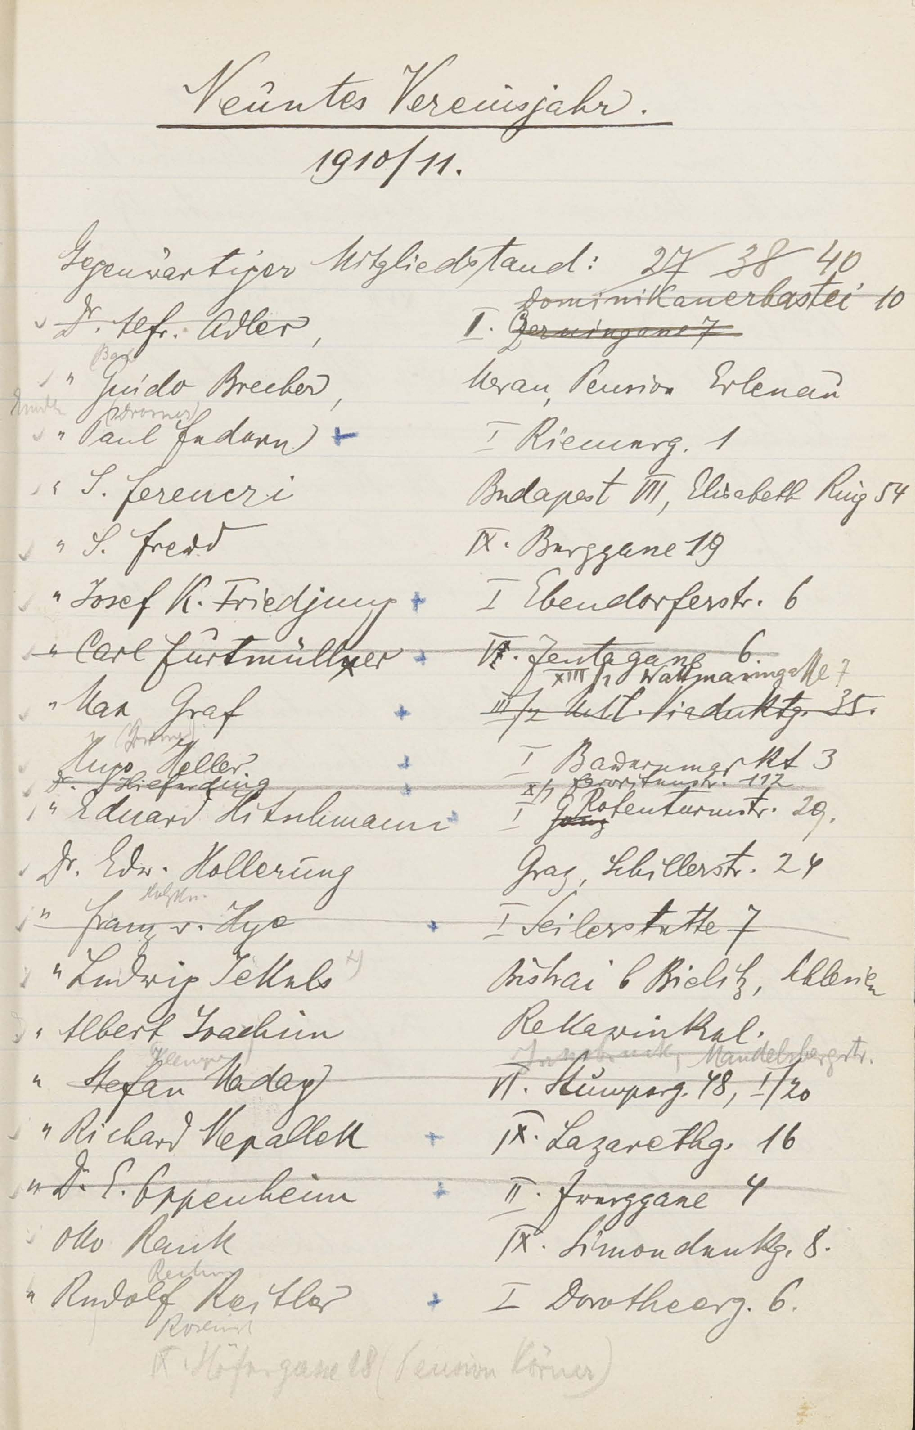 Neuntes Vereinsjahr.
1910/11.
Gegenwärtiger Mitgliedstand: 27 38 40
Dominikanerbastei 10
Dr. Alfr. Adler, I. Czerningasse 7
" Guido Brecher, Meran, Pension Erlenau
" Paul Federn + I Riemerg. 1
" S. Ferenczi Budapest VII, Elisabeth Ring 54
" S. Freud IX. Berggasse 19
" Josef K. Friedjung + I Ebendorferstr. 6
" Carl Furtmüller + 6.
XIII/1 Wattmanngasse 7
" Max Graf + III/2 Unt. Viaduktg. 35.
Hugo Heller + I Bauernmarkt 3
Dr. Hilferding + Favoritenstr. 112
" Eduard Hitschmann + I Rotenturmstr. 29.
Dr. Edw. Hollerung Graz, Schillerstr. 24
" Franz v. Hye + I Seilerstätte 7
" Ludwig Jekels Bistrai b Bielitz, Schlesien
" Albert Joachim Rekawinkel.
Innsbruck, Mandelsbergstr.
" Stefan Maday VI. Stumperg. 48, I/20
" Richard Nepallek + IX. Lazarethg. 16
" D. E. Oppenheim + II. Zwerggasse 4
Otto Rank IX. Simondenkg. 8.
" Rudolf Reitler + I Dorotheerg. 6.
IX Höfergasse 18 (Pension Körner)